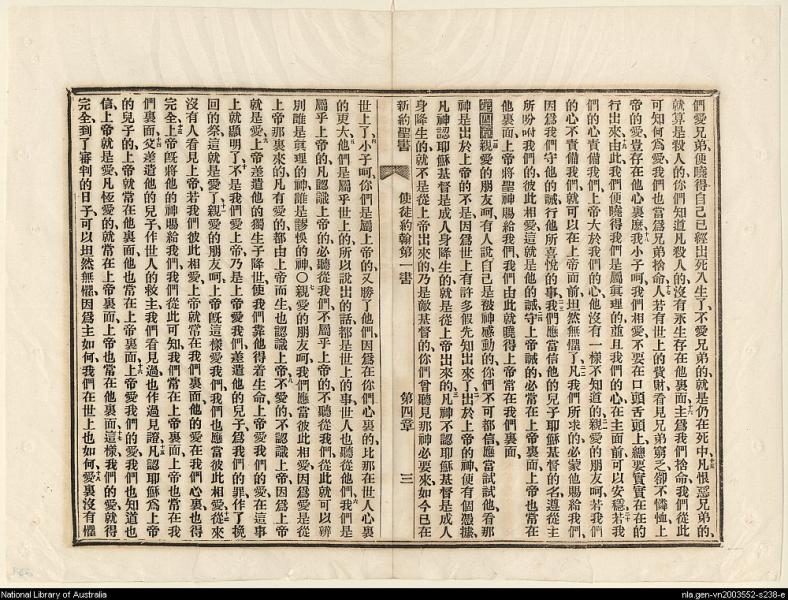 們愛兄弟便曉得自己已經出死入生了不愛兄弟的就是仍在死中凡恨惡兄弟的
就算是殺人的你們知道凡殺人的沒有永生存在他裏面主爲我們捨命我們從此
可知何爲愛我們也當爲兄弟捨命人若有世上的貨財看見兄弟窮乏卻不憐恤上
帝的愛豈存在他心裏麼我小子呵我們相愛不要在口頭舌頭上總要實實在在的
行出來由此我們便曉得我們是屬眞理的並且我們的心在主面前可以安穩若我
們的心責備我們上帝大於我們的心他沒有一樣不知道的親愛的朋友呵若我們
的心不責備我們就可以在上帝面前坦然無懼了凡我們所求的必蒙他賜給我們
因爲我們守他的誡行他所喜悅的事我們應當信他的兒子耶穌基督的名遵從主
所吩咐我們的彼此相愛這就是他的誡守上帝誡的必常在上帝裏面上帝也常在
他裏面上帝將聖神賜給我們我們由此就曉得上帝常在我們裏面
親愛的朋友呵有人說自己是被神感動的你們不可都信應當試試他看那
神是出於上帝的不是因爲世上有許多假先知出來了出於上帝的神便有個憑據
凡神認耶穌基督是成人身降生的就是從上帝出來的凡神不認耶穌基督是成人
身降生的就不是從上帝出來的乃是敵基督的你們曾聽見那神必要來如今已在
新約聖書 使徒約翰第一書 第四章 三
世上了小子呵你們是屬上帝的又勝了他們因爲在你們心裏的比那在世人心裏
的更大他們是屬乎世上的所以說出的話都是世上的事世人也聽從他們我們是
屬乎上帝的凡認識上帝的必聽從我們不屬乎上帝的不聽從我們從此就可以辨
別誰是眞理的神誰是謬悞的神○親愛的朋友呵我們應當彼此相愛因爲愛是從
上帝那裏來的凡有愛的都由上帝而生也認識上帝不愛的不認識上帝因爲上帝
就是愛上帝差遣他的獨生子降世使我們靠他得着生命上帝愛我們的愛在這事
上就顯明了不是我們愛上帝乃是上帝愛我們差遣他的兒子爲我們的罪作了挽
回的祭這就是愛了親愛的朋友呵上帝旣這樣愛我們我們也應當彼此相愛從來
沒有人看見上帝若我們彼此相愛上帝就常在我們裏面他的愛在我們心裏也得
完全上帝旣將他的神賜給我們我們從此可知我們常在上帝裏面上帝也常在我
們裏面父差遣他的兒子作世人的救主我們看見過也作過見證凡認耶穌爲上帝
的兒子的上帝就常在他裏面他也常在上帝裏面上帝愛我們的愛我們也知道也
信上帝就是愛凡恆愛的就常在上帝裏面上帝也常在他裏面這樣我們的愛就得
完全到了審判的日子可以坦然無懼因爲主如何我們在世上也如何愛裏沒有懼
National Library of Australia
nla.gen-vn2003552-s238-e